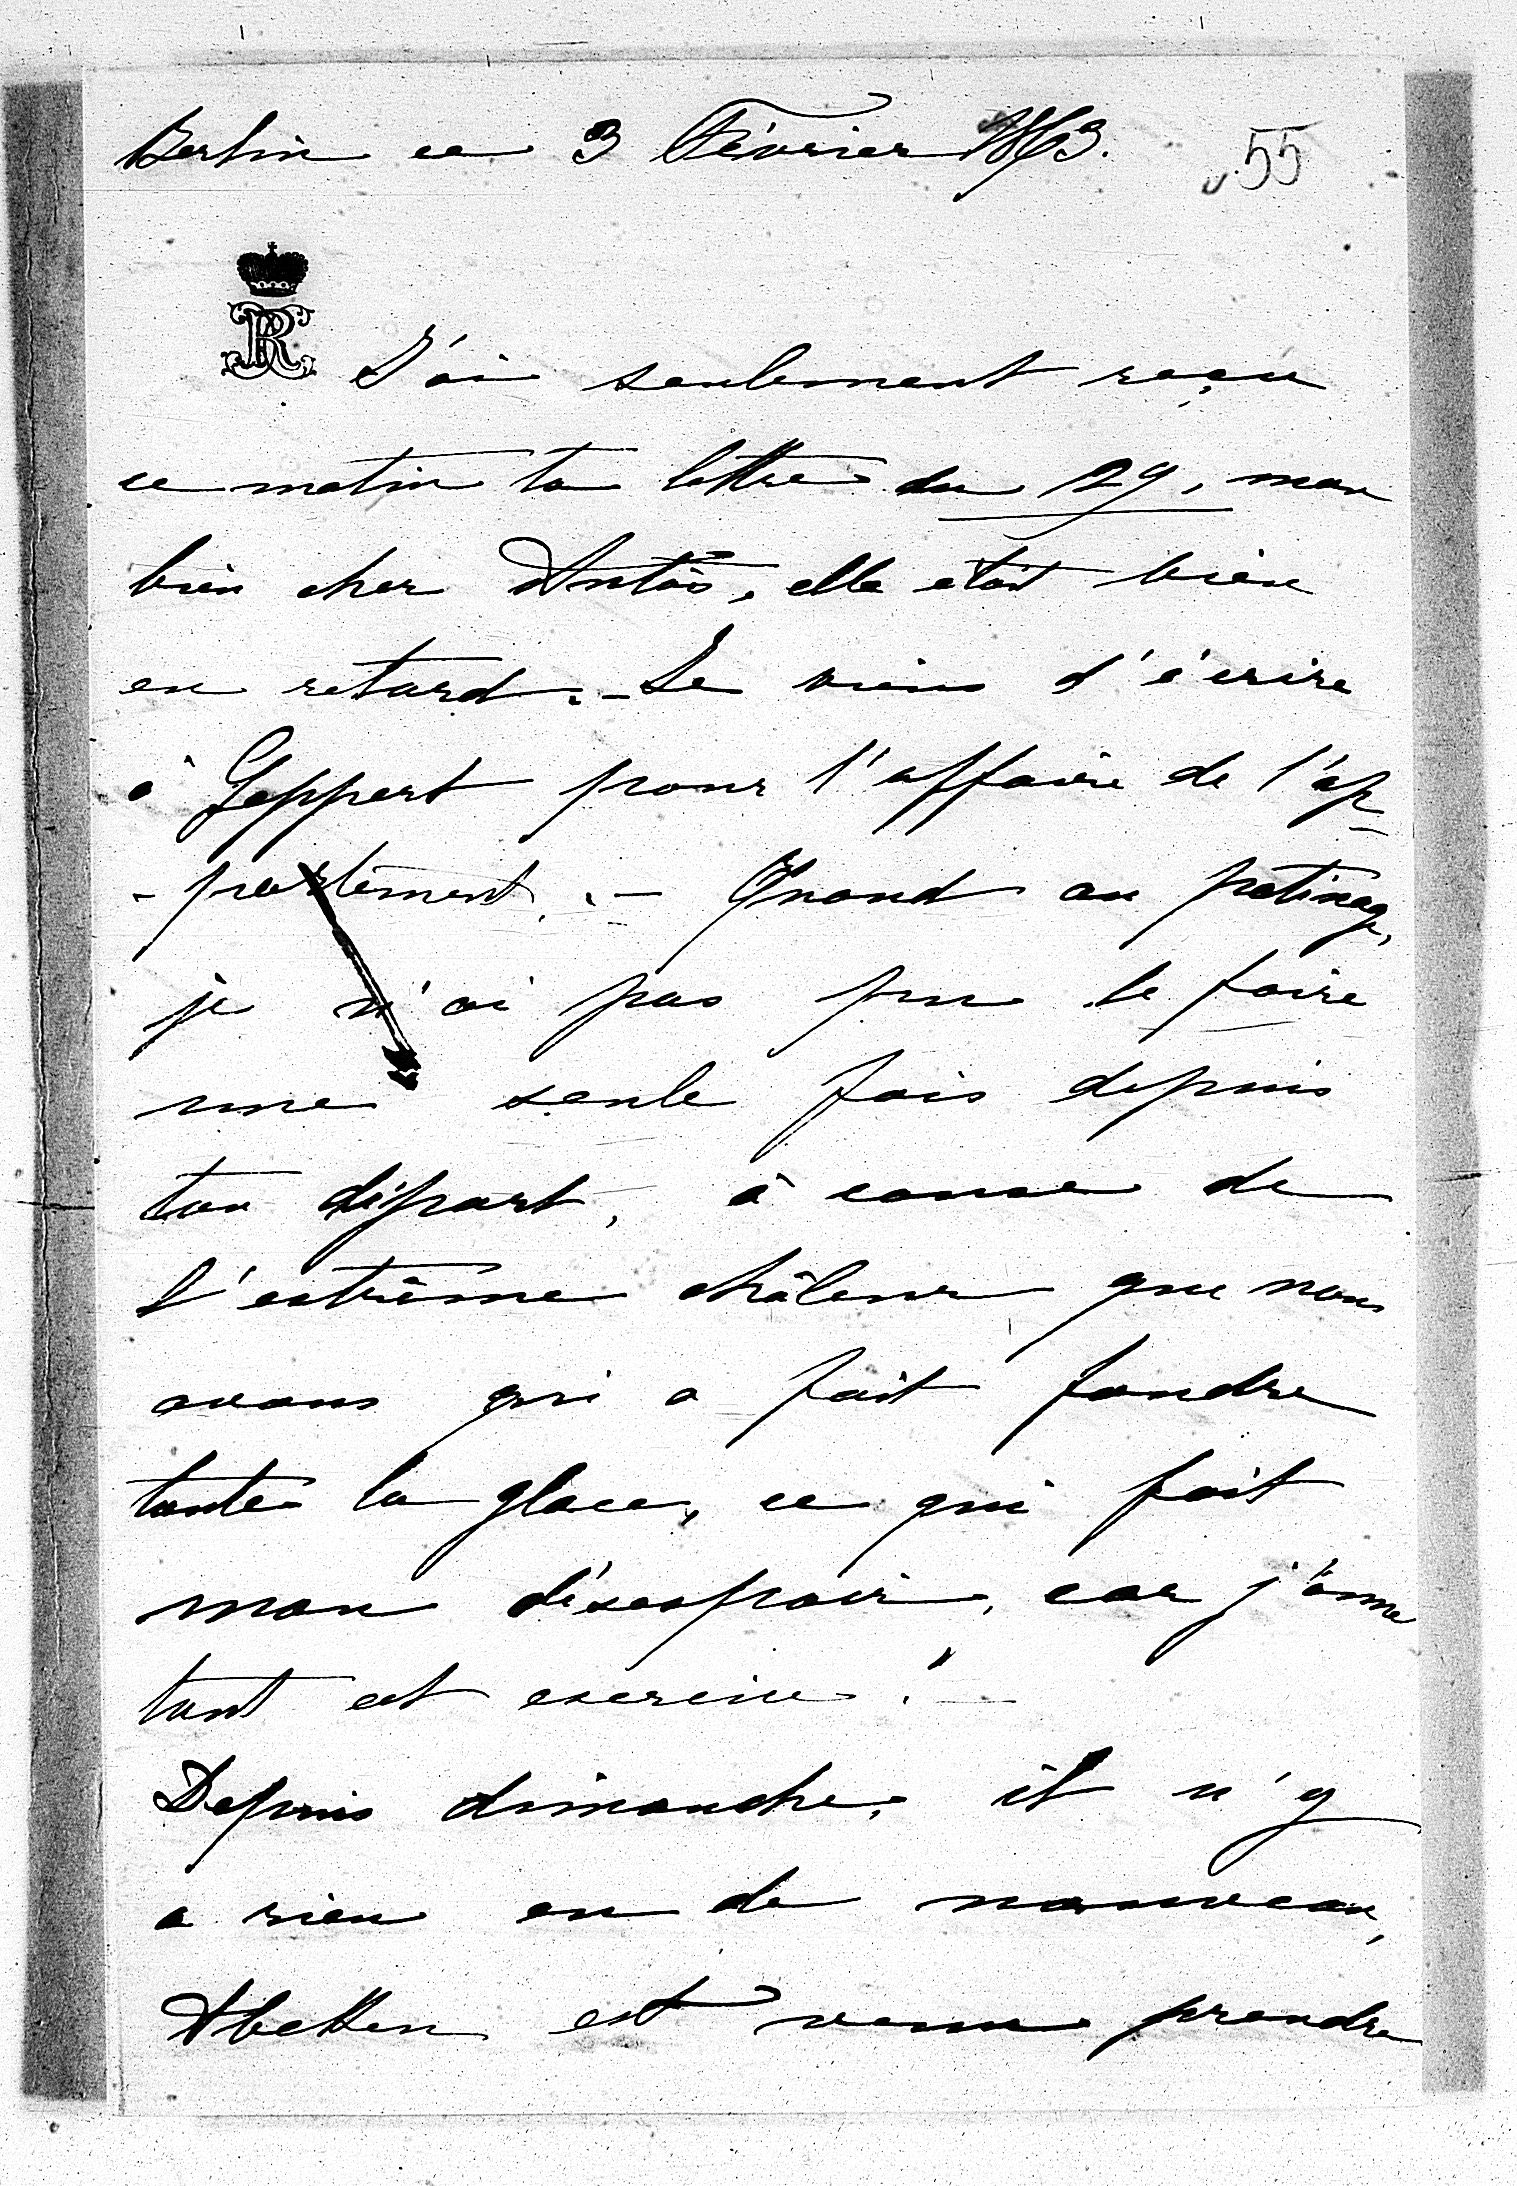 Berlin ce 3 Février 1863.
55
J'ai seulement reçu
ce matin ta lettre du 29, mon
bien cher Antôs, elle étoit bien
en retard. - Je viens d'écrire
à Geppert pour l'affaire de l'ap-
-partement. - Quand au patinage,
je n'ai pas pu le faire
une seule fois depuis
ton départ, à cause de
l'extrême châleur que nous
avons qui a fait fondre
toute la glace, ce qui fait
mon désespoir, car j'aime
tant cet exercice. -
Depuis dimanche, il n'y
a rien eu de nouveau,
Abeken est venu prendre